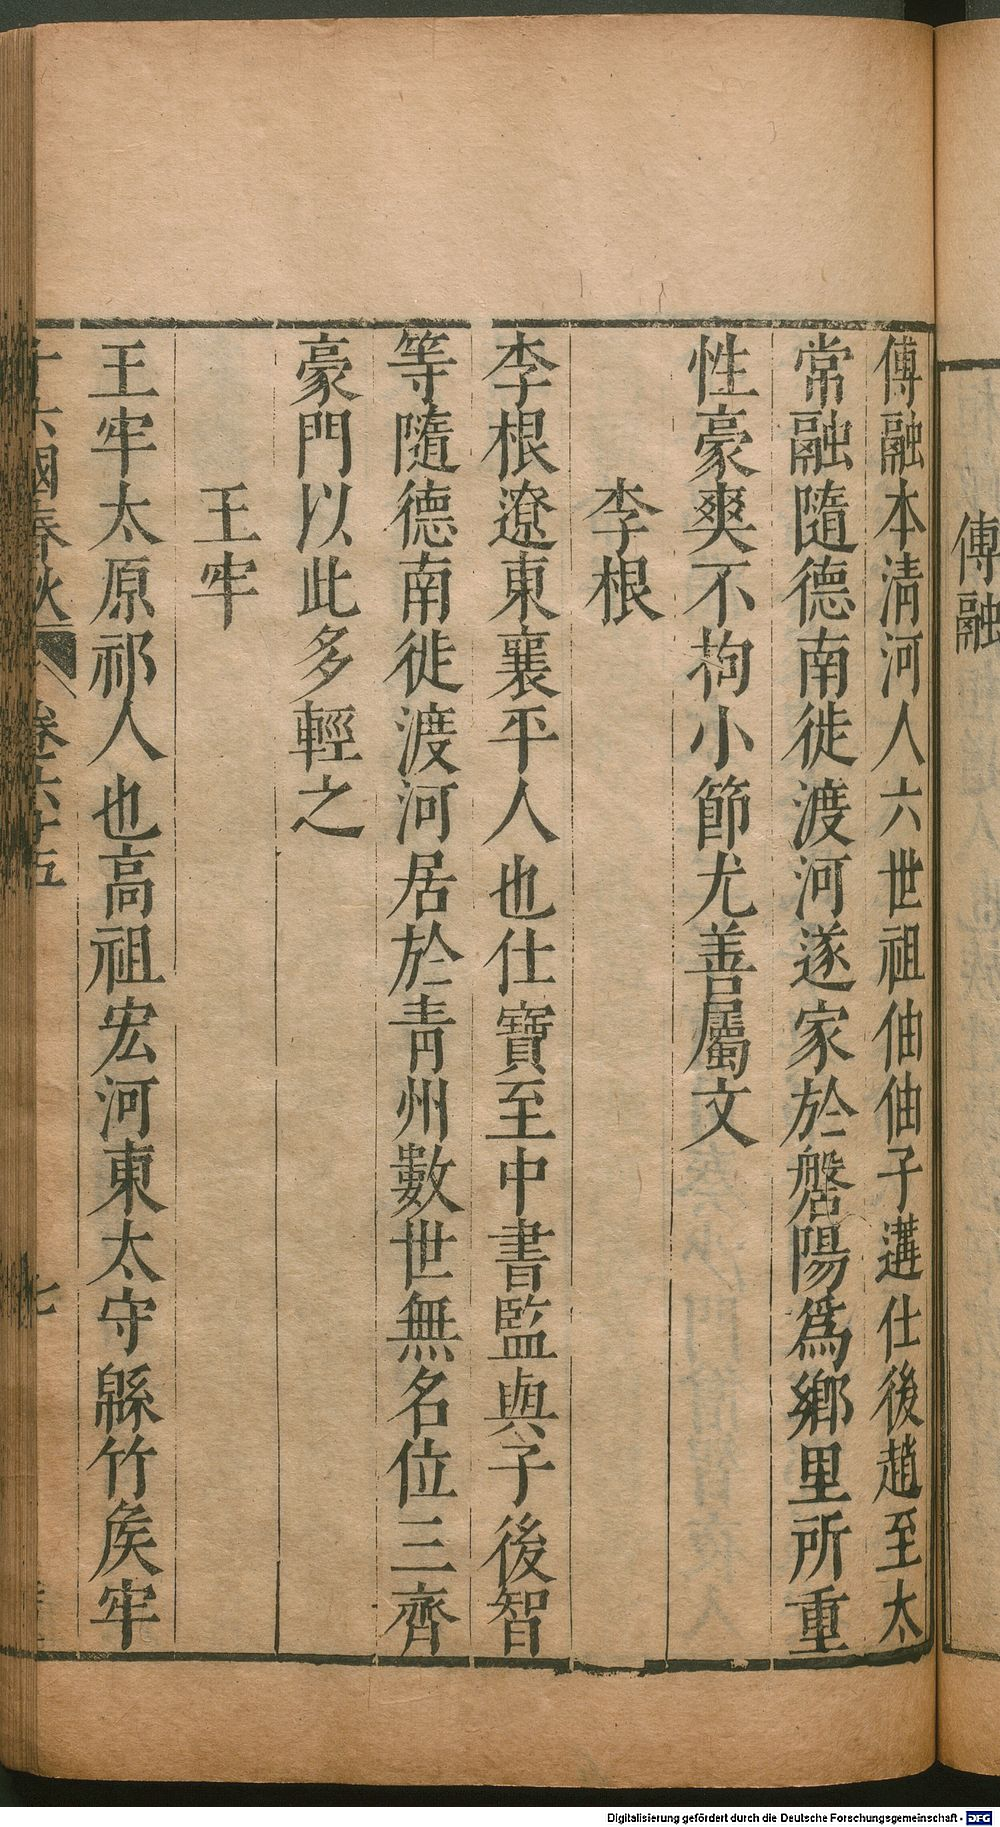 傅融
傅融本清河人六世祖伷伷子遘仕後趙至太
常融隨德南徙渡河遂家於磐陽爲鄉里所重
性豪爽不拘小節尤善屬文
李根
李根遼東襄平人也仕寶至中書監與子後智
等隨德南徙渡河居於青州數世無名位三齊
豪門以此多輕之
王牢
王牢太原祁人也高祖宏河東太守緜竹矦牢
十六國春秋 卷六十五 七
Digitalisierung gefördert durch die Deutsche Forschungsgemeinschaft - DFG